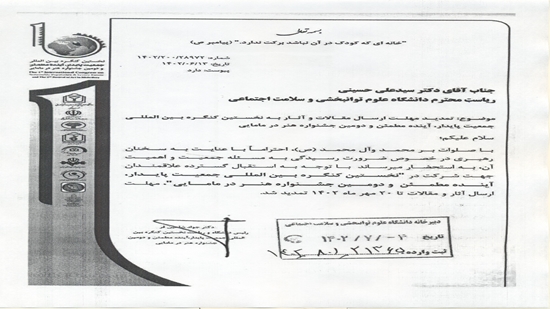 بسمه تعالی
"خانه ای که کودک در آن نباشد برکت ندارد." (پیامبر ص)
شماره: ۱۴۰۲/۲۰۰/۲۸۹۷۲
تاریخ: ۱۴۰۲/۰۶/۱۲
پیوست: دارد
نخستین کنگره بین المللی
جمعیت پایدار، آینده مطمئن
و دومین جشنواره هنر در مامایی
جناب آقای دکتر سیدعلی حسینی
ریاست محترم دانشگاه علوم توانبخشی و سلامت اجتماعی
موضوع: تمدید مهلت ارسال مقالات و آثار به نخستین کنگره بین المللی
جمعیت پایدار، آینده مطمئن و دومین جشنواره هنر در مامایی
سلام علیکم؛
با صلوات بر محمد وآل محمد (ص)، احتراماً با عنایت به سخنان
رهبری در خصوص ضرورت رسیدگی به مسئله جمعیت و اهمیت
آن، به استحضار میرساند با توجه به استقبال گسترده علاقمندان
جهت شرکت در "نخستین کنگره بین المللی جمعیت پایدار،
آینده مطمئن و دومین جشنواره هنر در مامایی"، مهلت
ارسال آثار و مقالات تا ۲۰ مهر ماه ۱۴۰۲ تمدید شد.
رئیس دانشگاه و ریاست نخستین کنگره بین
المللی جمعیت پایدار،آینده مطمئن و دومین
جشنواره هنر در مامایی
دبیرخانه دانشگاه علوم توانبخشی و سلامت اجتماعی
تاریخ ۱۴۰۲/۷/۰۳
ثبت وارده